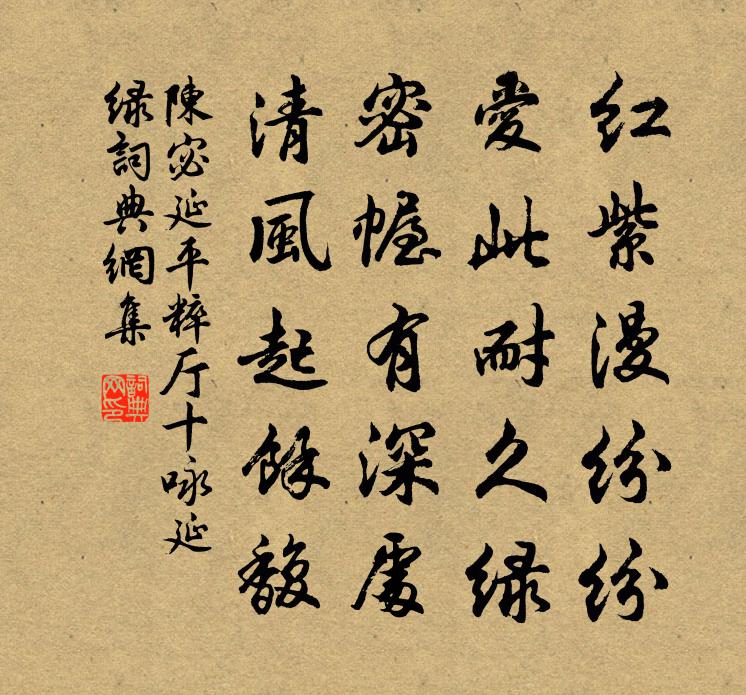 红紫漫纷纷
爱此耐久绿
密幄有深處
清風起餘馥
陳宓延平粹厅十咏延
绿詞典網集
詞典網印